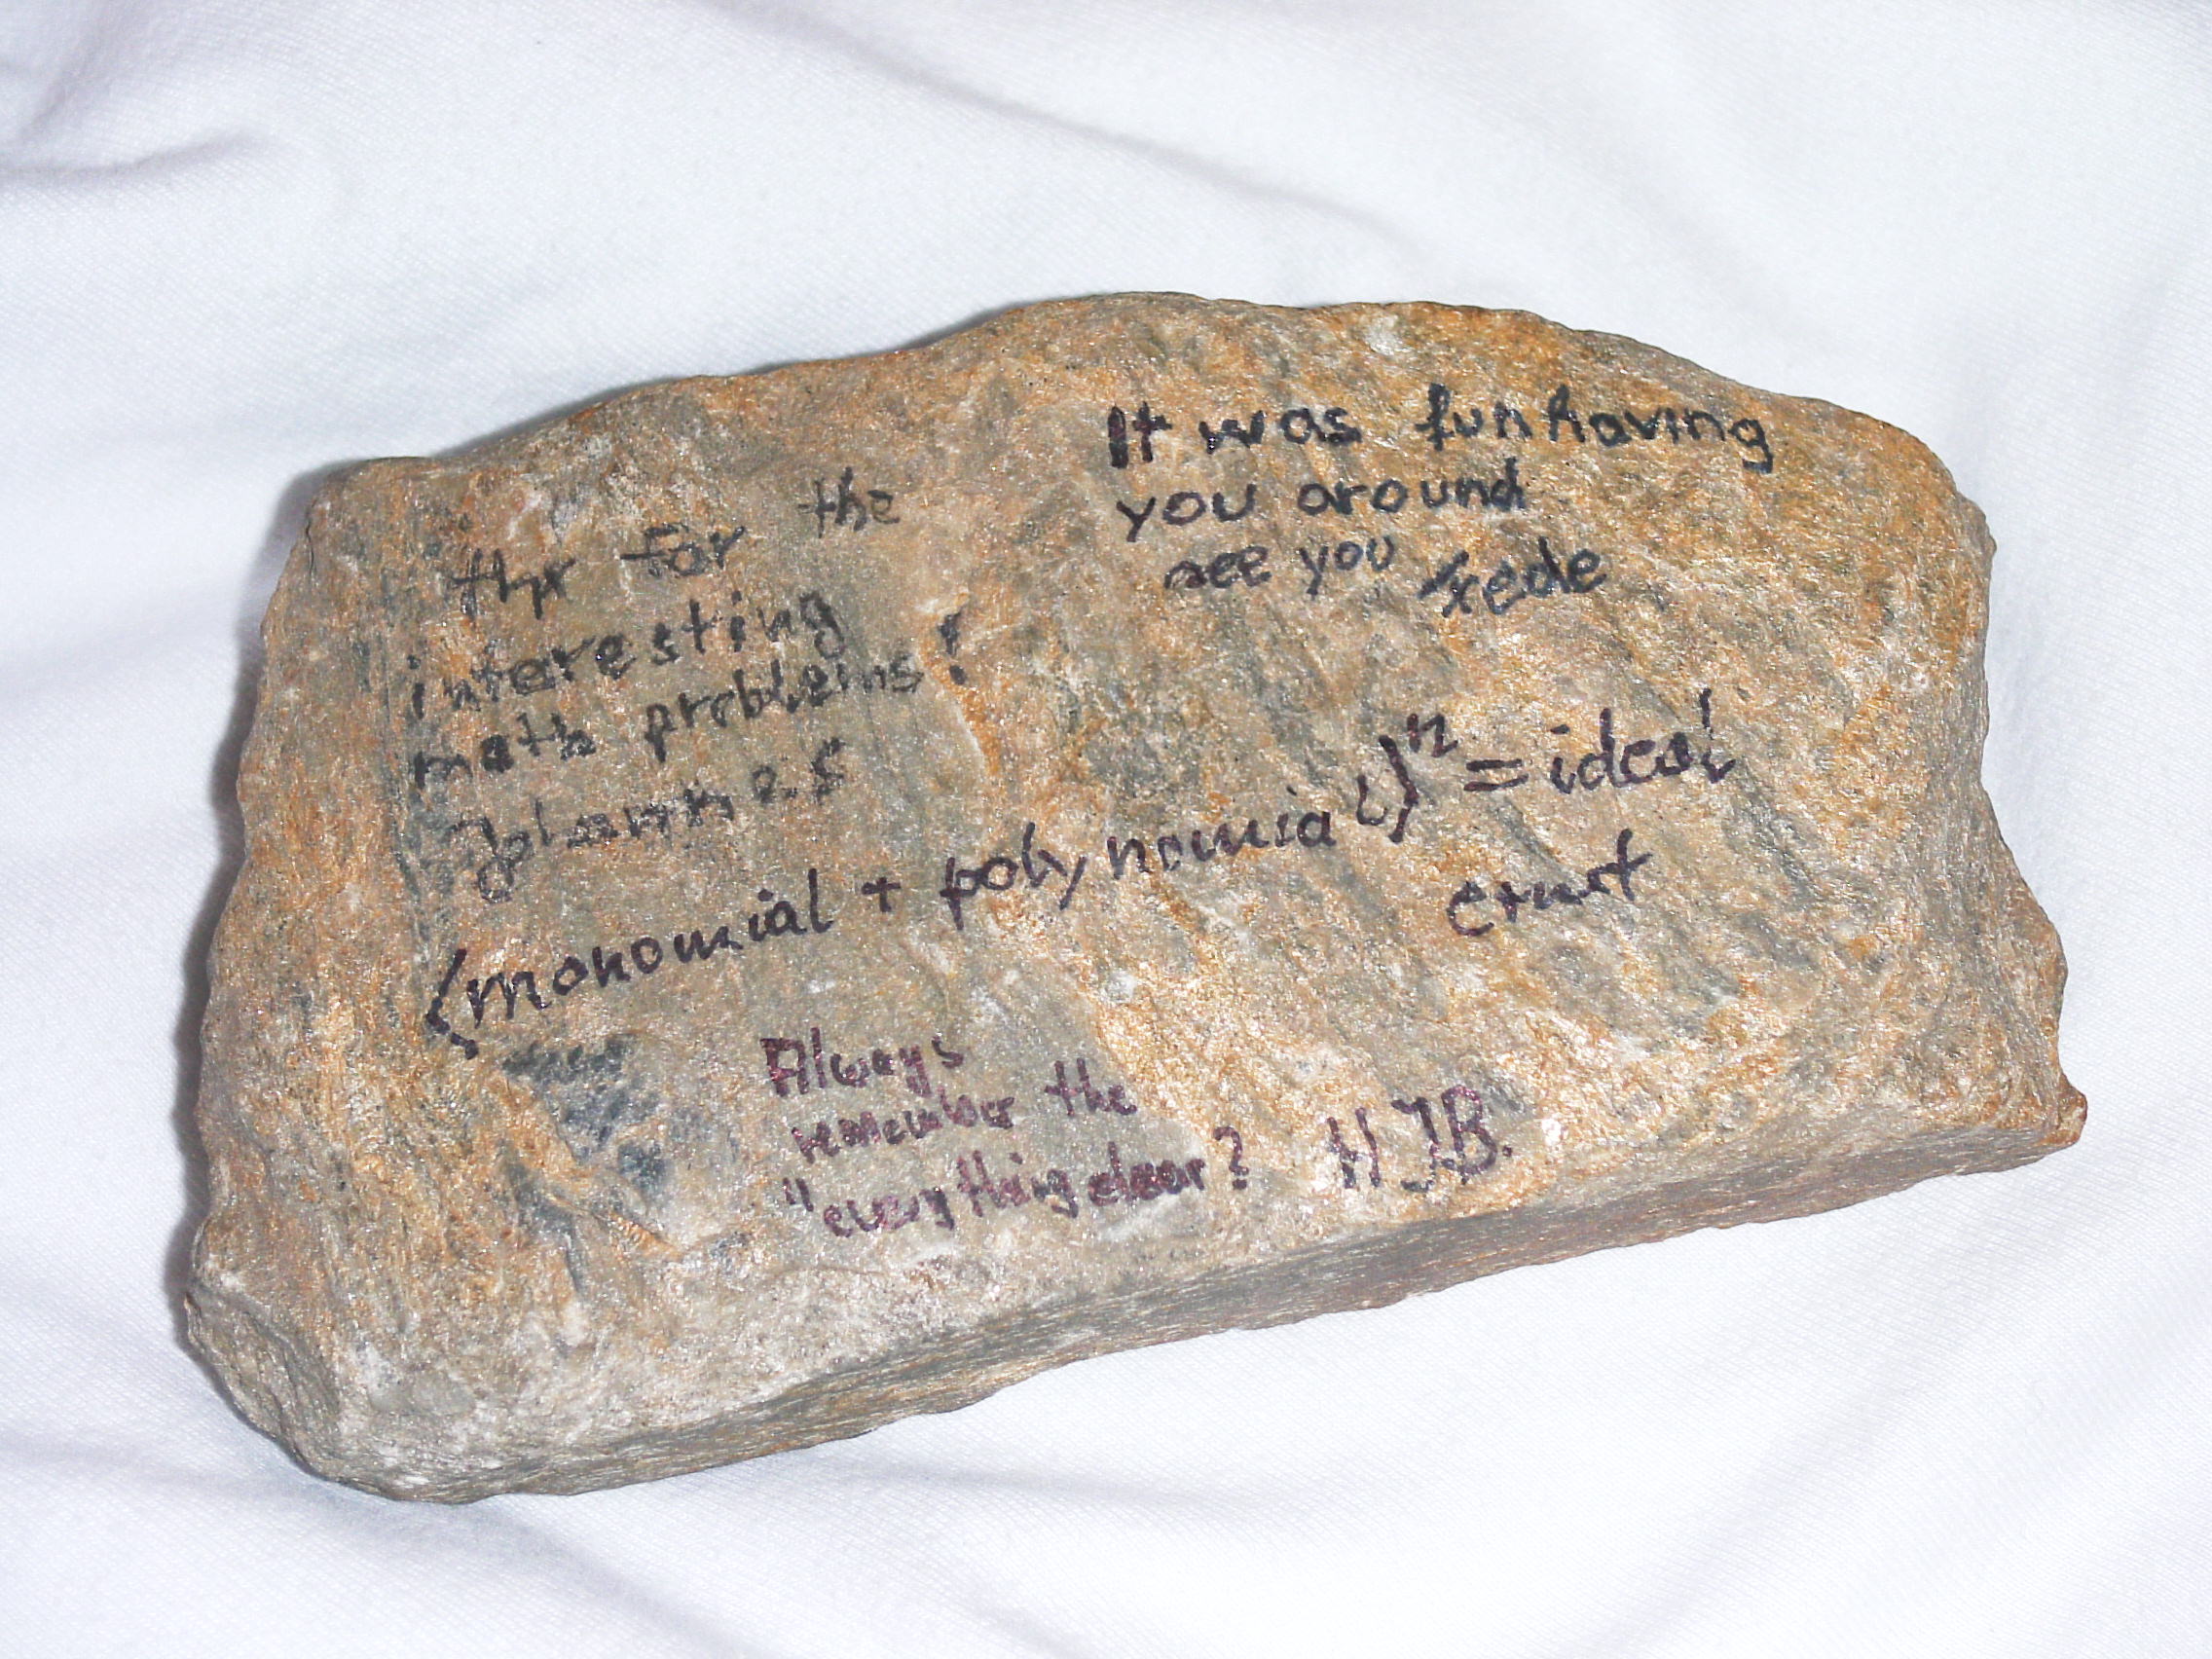 thx for the
interesting
math problems!
Johannes
It was fun having
you around
see you
(monomial + polynomial)ⁿ = ideal
Always
remember the
"everything clear? HJB.